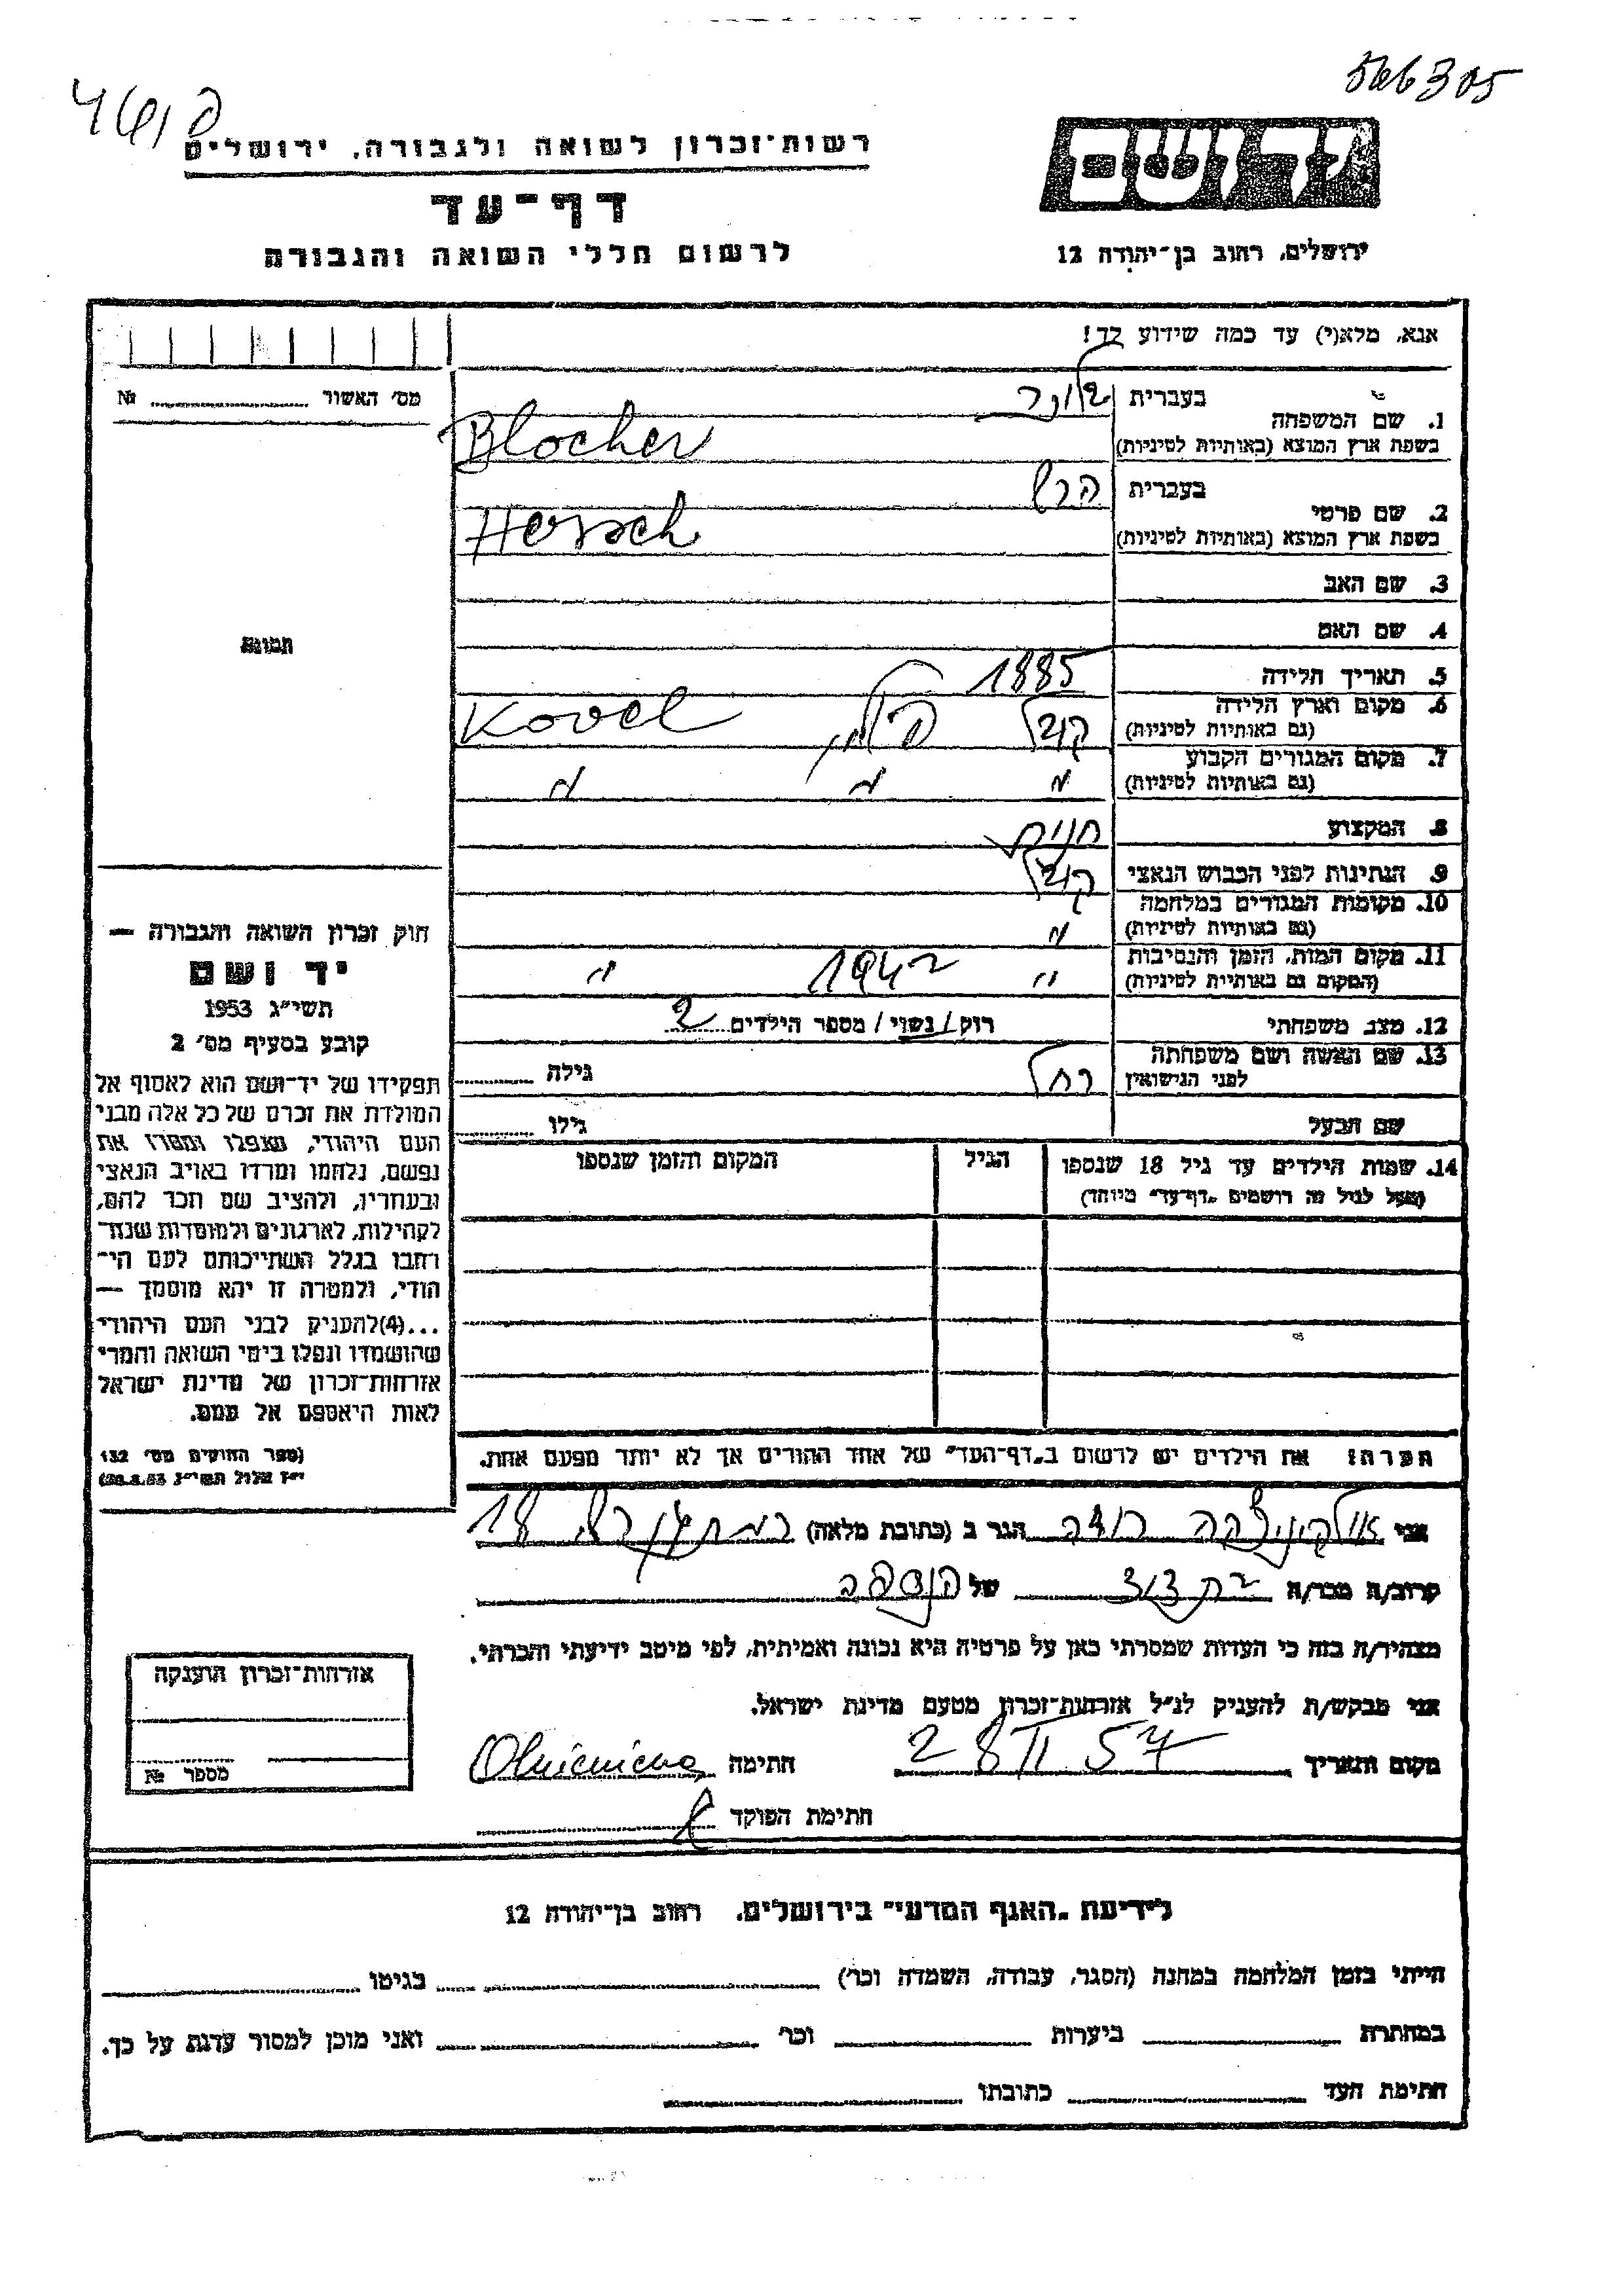 566305
רשות־זכרון לשואה ולגבורה, ירושלים
דף־עד
לרשום חללי השואה והגבורה
יד ושם
ירושלים, רחוב בן־יהודה 12
אנא, מלא(י) עד כמה שידוע לך!
מס׳ האשור № 
1. שם המשפחה
בעברית בלוכר
בשפת ארץ המוצא (באותיות לטיניות) Blocher
2. שם פרטי
בעברית הרש
בשפת ארץ המוצא (באותיות לטיניות) Hersch
3. שם האב
4. שם האם
תמונה
5. תאריך הלידה 1885
6. מקום וארץ הלידה (גם באותיות לטיניות) קובל פולין Kovel
7. מקום המגורים הקבוע (גם באותיות לטיניות) " " "
8. המקצוע
9. הנתינות לפני הכבוש הנאצי קובל
10. מקומות המגורים במלחמה (גם באותיות לטיניות) "
11. מקום המות, הזמן והנסיבות (המקום גם באותיות לטיניות) " 1942 "
12. מצב משפחתי רוק/נשוי/ מספר הילדים 2
13. שם האשה ושם משפחתה לפני הנישואין רחל גילה
שם הבעל גילו
14. שמות הילדים עד גיל 18 שנספו
(מעל לגיל זה רושמים „דף־עד״ מיוחד)
הגיל
המקום והזמן שנספו
חוק זכרון השואה והגבורה —
יד ושם
תשי״ג 1953
קובע בסעיף מס׳ 2
תפקידו של יד־ושם הוא לאסוף אל
המולדת את זכרם של כל אלה מבני
העם היהודי, שנפלו ומסרו את
נפשם, נלחמו ומרדו באויב הנאצי
ובעוזריו, ולהציב שם וזכר להם,
לקהילות, לארגונים ולמוסדות שנח־
רבו בגלל השתייכותם לעם הי־
הודי, ולמטרה זו יהא מוסמך —
...(4)להעניק לבני העם היהודי
שהושמדו ונפלו בימי השואה והמרי
אזרחות־זכרון של מדינת ישראל
לאות היאספם אל עמם.
(ספר החוקים מס׳ 132
י״ז אלול תשי״ג 28.8.53)
הערה: את הילדים יש לרשום ב„דף־העד״ של אחד ההורים אך לא יותר מפעם אחת.
אני הגר ב (כתובת מלאה) רמת 18
קרוב/ה מכר/ה בת דוד של הנספה
מצהיר/ה בזה כי העדות שמסרתי כאן על פרטיה היא נכונה ואמיתית, לפי מיטב ידיעתי והכרתי.
אני מבקש/ת להעניק לנ״ל אזרחות־זכרון מטעם מדינת ישראל.
מקום ותאריך 28 II 57 חתימה
חתימת הפוקד
אזרחות־זכרון הוענקה
מספר №
לידיעת „האגף המדעי״ בירושלים, רחוב בן־יהודה 12
הייתי בזמן המלחמה במחנה (הסגר, עבודה, השמדה וכו׳) בגיטו
במחתרת ביערות וכו׳ ואני מוכן למסור עדות על כך.
חתימת העד כתובתו